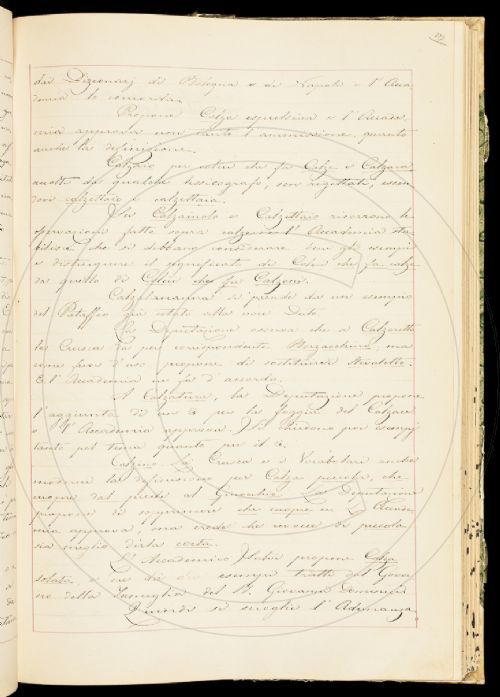 dai Dizionarj di Bologna e di Napoli e l'Acca
demia lo consente.
Propone Calza espulsiva e l'Accade
mia approva non tanto l'ammissione, quanto
anche la definizione.
Calzaio per colui che fa Calze e Calzaia
ammesse da qualche lessicografo, son rigettate, essen
dovi calzettaio e calzettaia.
Su Calzaiolo e Calzettaio ricorrono le
osservazioni fatte sopra l'Accademia sta
bilisce che si debbano considerare bene gli esempi
e distinguere il significato di Colui che fa calze
da quello di Colui che fa Calzoni.
si prende da un esempio
del Pataffio già citato alla voce
La Deputazione osserva che a Calzaretto
la Crusca fa per corrispondente Borzacchino, ma
come fuor d'uso propone di sostituirvi Stivaletto.
E l'Accademia ne fu d'accordo.
A Calzatura, la Deputazione propone
l'aggiunta di un § per la foggia del Calzare
e l'Accademia approva. Si rendono poi esempj
tanto pel tema quanto per il §.
Calzino. La Crusca e i Vocabolari anche
moderni la definiscono per Calza piccola, che
cuopre dal piede al Ginocchio. La Deputazione
propone di sopprimere che cuopre ec. L'Accade
mia approva, ma crede che invece di piccola
sia meglio dire corta.
L'Accademico propone Calza
solata, e ne dà due esempi tratti dal Gover
no della Famiglia del B. Giovanni Dominici
Quindi si scioglie l'Adunanza